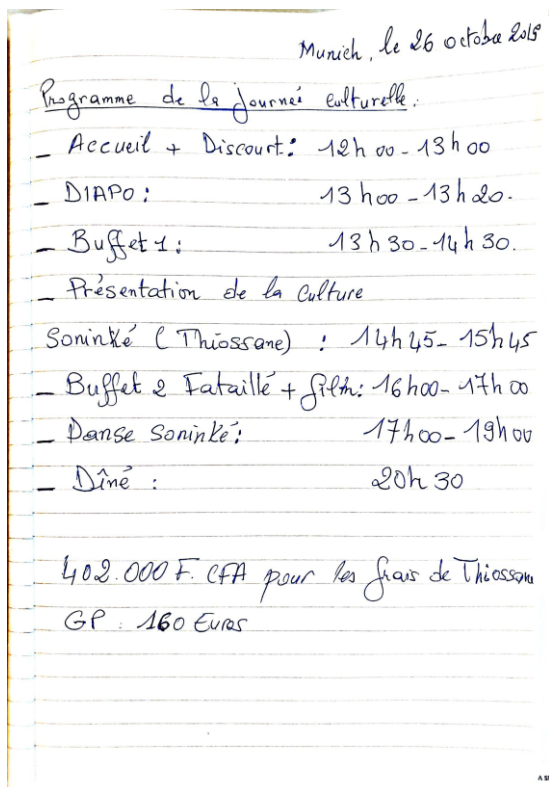 Munich, le 26 octobre 2019
Programme de la journeé culturelle:
- Accueil + Discourt: 12h00 - 13h00
- DIAPO: 13h00 - 13h20.
- Buffet 1: 13h30 - 14h30.
- Présentation de la culture
Soninké (Thiossane) : 14h45 - 15h45
- Buffet 2 Fataillé + film: 16h00 - 17h00
- Danse Soninké: 17h00 - 19h00
- Dîné : 20h30
402.000 F. CFA pour les frais de Thiossane
GP : 160 Euros